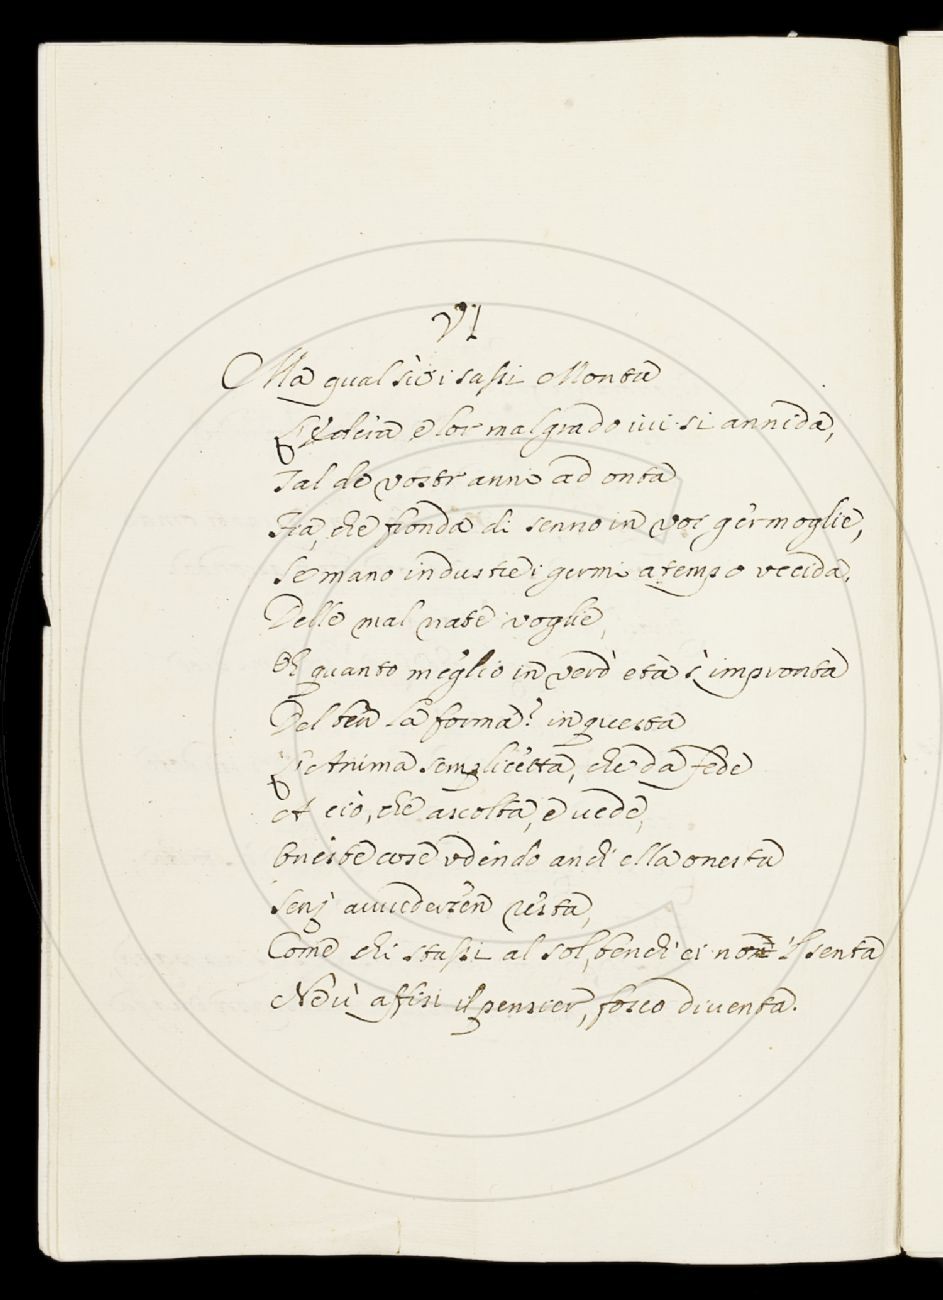 VI
Ma qual su i sassi Monta
L'Edera e lor mal grado ivi si annida,
Tal de vostr anni ad onta
Fia, che fronda di senno in voi germoglie,
Se mano industre i germi a tempo uccida,
Delle mal nate voglie,
Oh quanto meglio in verd età s'impronta
Del ben la forma! in questa
L'Anima semplicetta, che dà fede
A ciò, che ascolta, e vede,
Queste cose udendo anch ella onesta
Senz avvedersen resta,
Come chi stassi al sol, bench' ei non 'l senta
Nè vi affisi il pensier, fosco diventa.